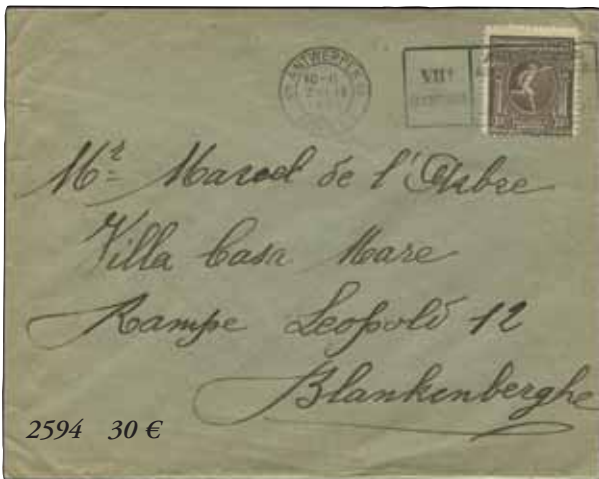 ANTWERPEN
VII†
Mr Marcel de l'Arbre
Villa Casa Mare
Rampe Leopold 12
Blankenberghe
2594 30 €